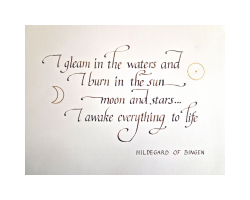 I gleam in the waters and
I burn in the sun
moon and stars...
I awake everything to life
HILDEGARD OF BINGEN